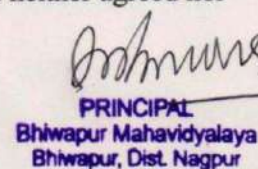 agreed
PRINCIPAL
Bhiwapur Mahavidyalaya
Bhiwapur, Dist. Nagpur